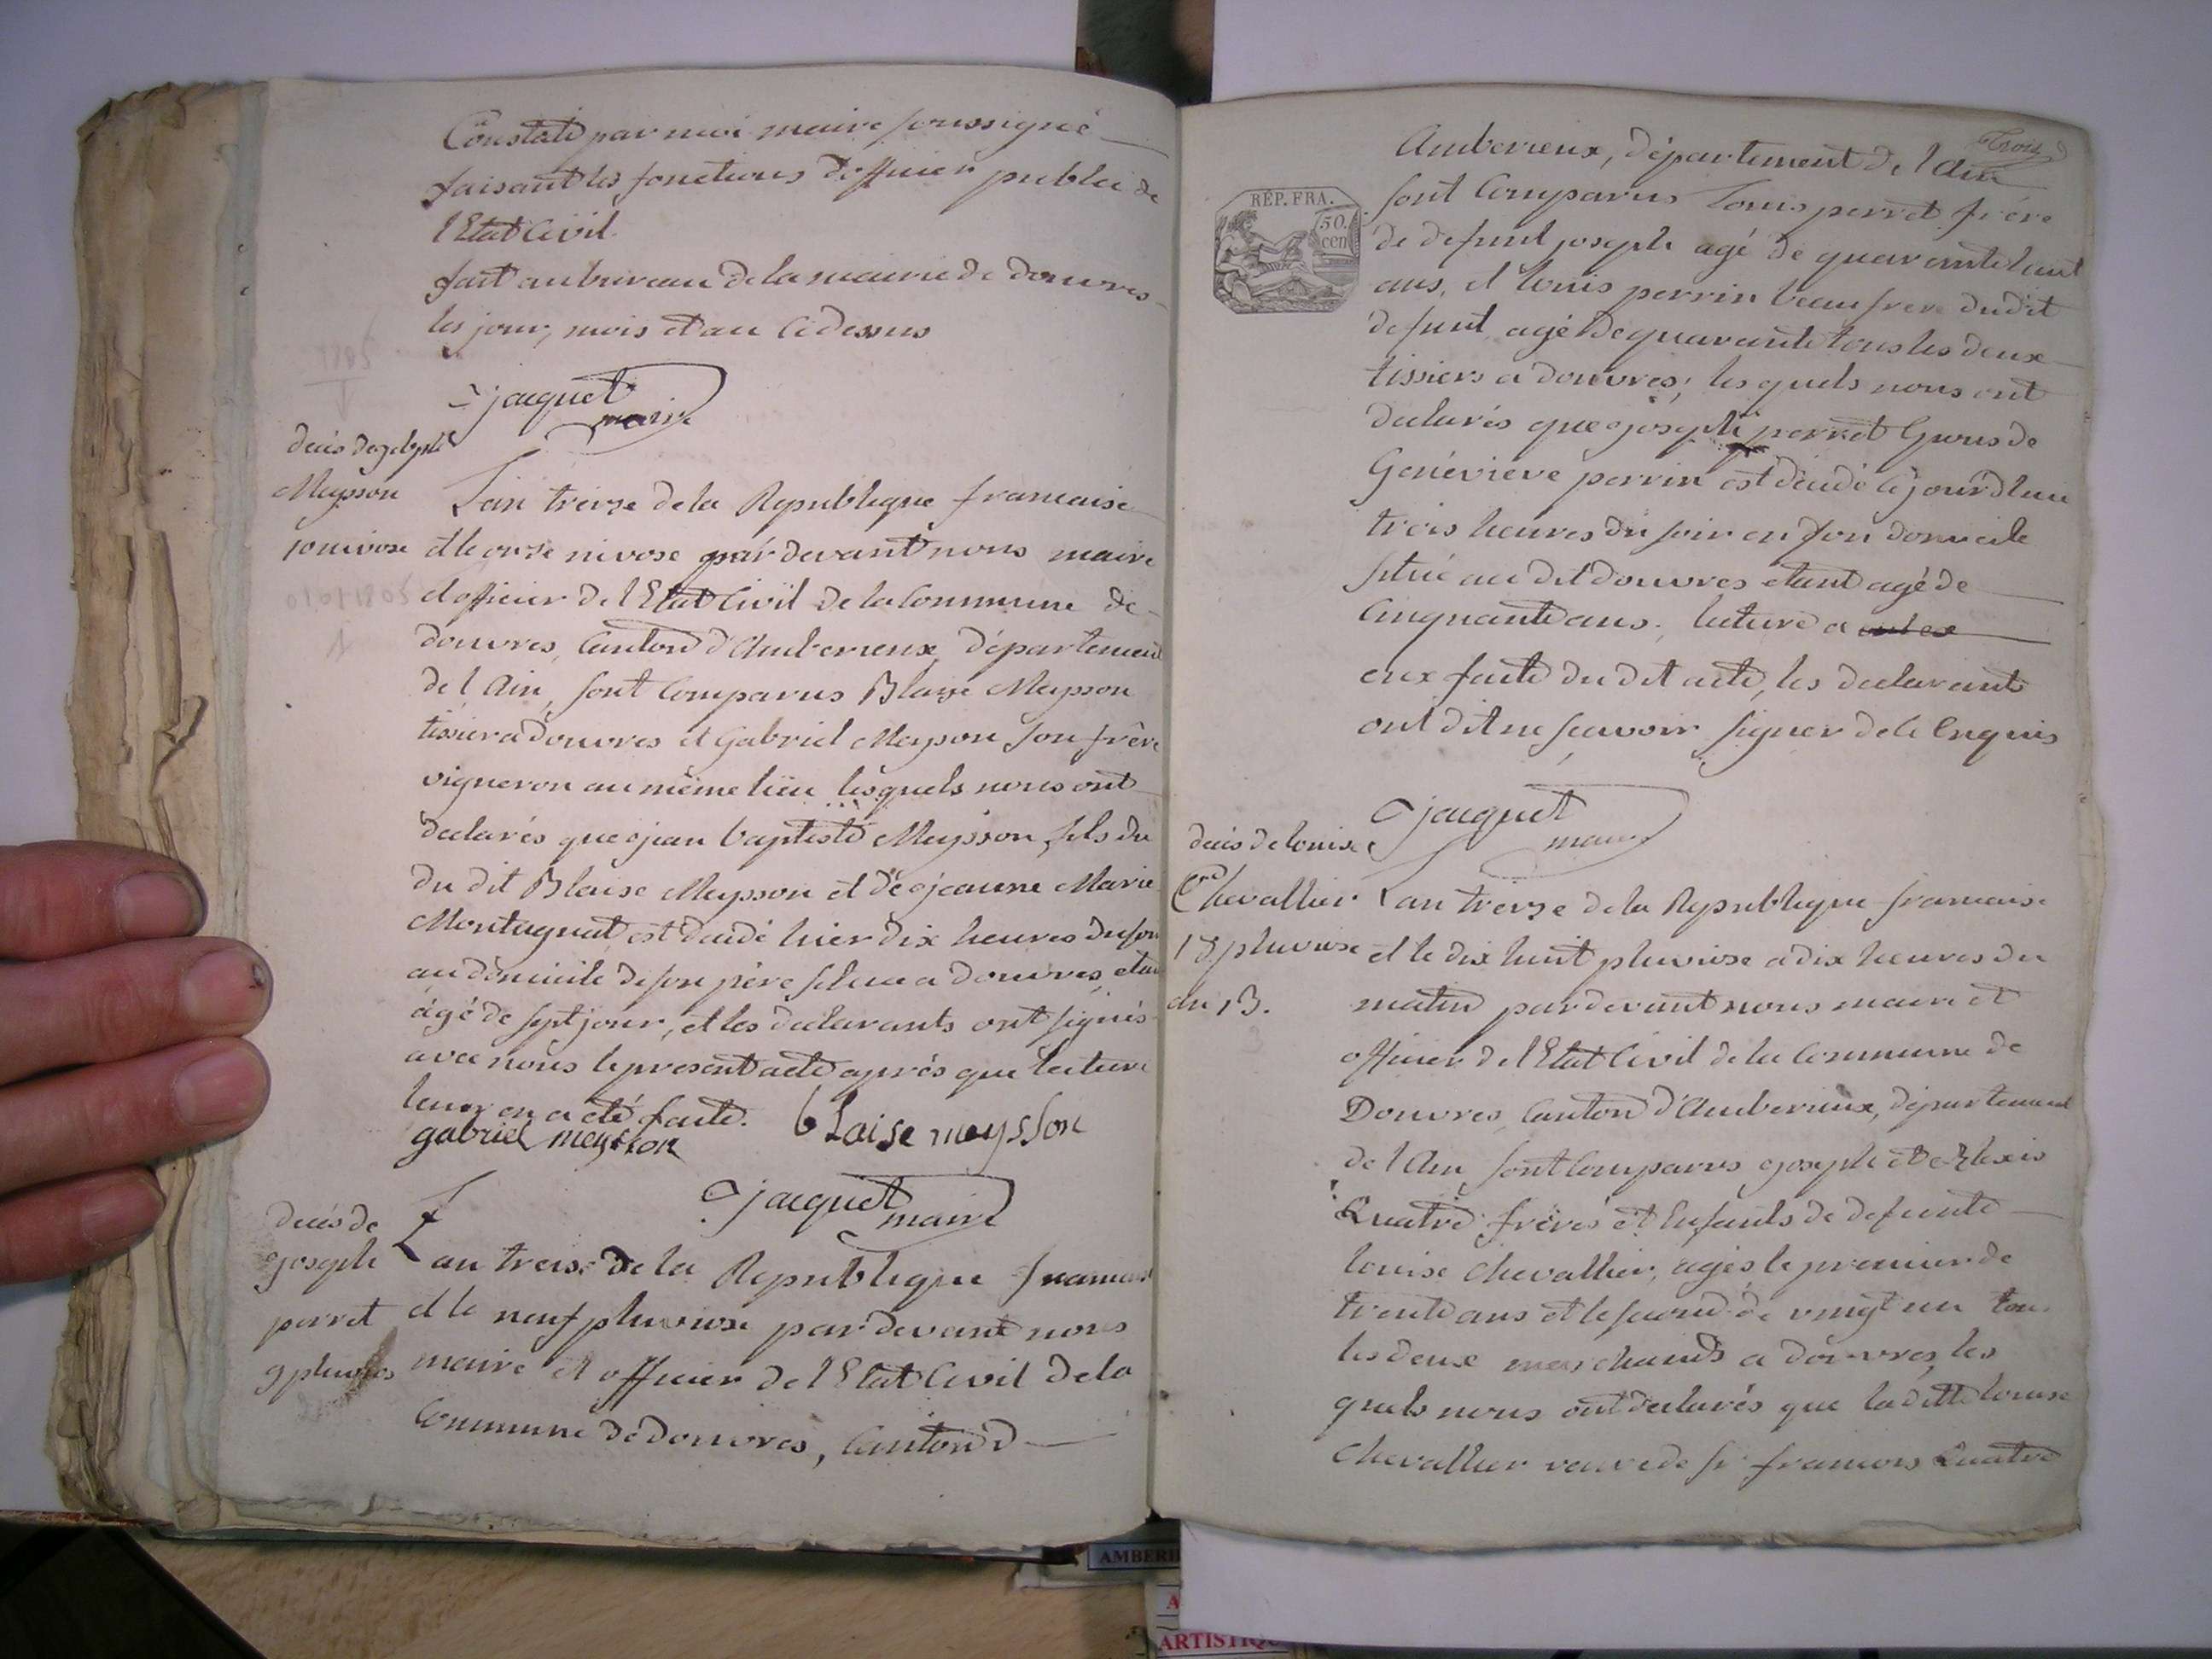 Constaté par moi maire soussigné
faisant les fonctions d'officier public de
l'Etat Civil.
fait au bureau de la mairie de douvres
les jour, mois et an cidessus
jacquet
maire
décès de
Meysson
10 nivose
L'an treize de la Republique francaise
et le onze nivose par devant nous maire
et officier de l'Etat Civil de la Commune de
douvres, Canton d'Amberieux, département
de l'Ain, sont Comparus Blaise Meysson
tissier a douvres et Gabriel Meysson son frère
vigneron au même lieu lesquels nous ont
declarés que jean baptiste Meysson, fils du
du dit Blaise Meysson et de jeanne Marie
Montagnat est décédé hier dix heures du soir
au domicile de son père situé a douvres, etant
âgé de sept jour, et les declarants ont signés
avec nous le present acte après que lecture
leur en a eté faite.
gabriel meysson blaise meysson
jacquet
maire
décès de
joseph
perret
9 pluviose
L'an treise de la Republique francaise
et le neuf pluviose par devant nous
maire et officier de l'Etat Civil de la
Commune de douvres, Canton d
Trois
REP. FRA.
50.
cen
Amberieux, département de l'Ain
sont Comparus Louis perret frère
de defunt joseph agé de quarante huit
ans, et louis perrin beaufrere dudit
defunt, agé de quarante tous les deux
tissiers a douvres; les quels nous ont
declarés que joseph perret Epoux de
Geneviève perrin est décédé ce jourd'hui
trois heures du soir en son domicile
situé au dit douvres etant agé de
Cinquante ans. lecture a
eux faite du dit acte, les declarants
ont dit ne scavoir signer de ce Enquis
jacquet
maire
décès de louise
Chevallier
18 pluviose
an 13.
L'an treize de la Republique francaise
et le dix huit pluviose a dix heures du
matin par devant nous maire et
officier de l'Etat Civil de la Commune de
Douvres, Canton d'Amberieux, département
de l'Ain, sont Comparus joseph et Alexis
Quatre frères et Enfants de defunte
louise Chevallier, agés le premier de
trente ans et le second de vingt un tous
les deux marchands a douvres, les
quels nous ont declarés que la ditte louise
Chevallier veuve de Sr francois Quatre
AMBERI
A
ARTISTIQU